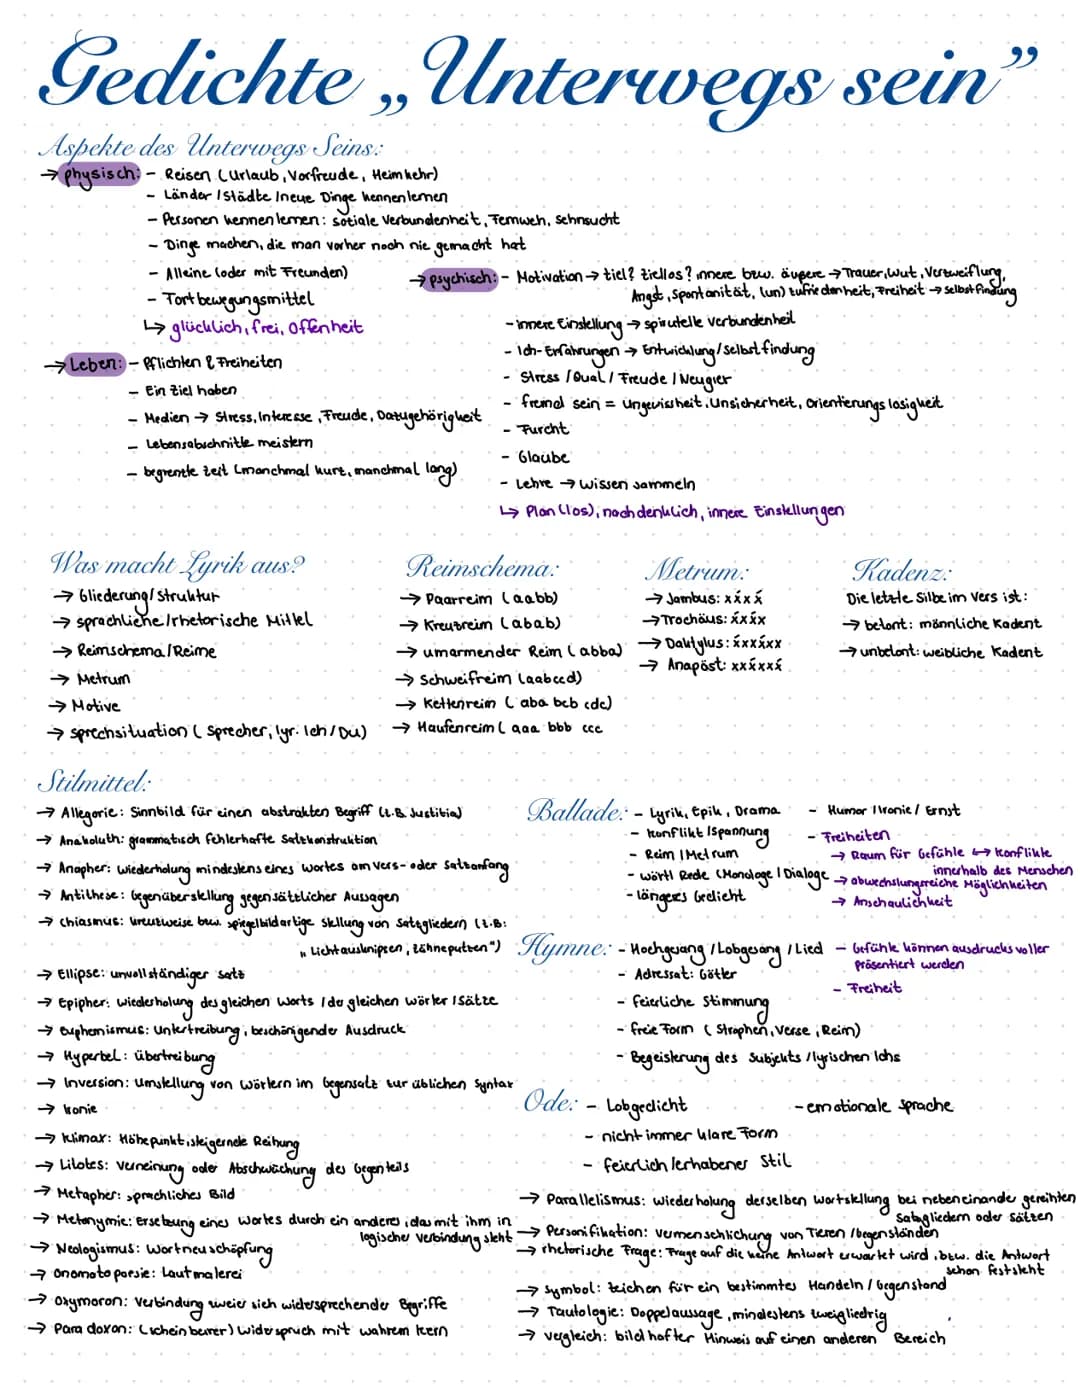 Gedichte „Unterwegs sein"
Aspekte des Unterwegs Seins:
→ physisch: - Reisen (Urlaub, Vorfreude, Heimkehr)
- Länder / Städte / neue Dinge kennenlernen
- Personen kennenlernen: soziale Verbundenheit, Fernweh, Sehnsucht
- Dinge machen, die man vorher noch nie gemacht hat
- Alleine (oder mit Freunden)
- Fortbewegungsmittel
↳ glücklich, frei, Offenheit
→ psychisch: - Motivation → Ziel? Ziellos? innere bzw. äußere → Trauer, Wut, Verzweiflung,
Angst, Spontanität, (Un)zufriedenheit, Freiheit → Selbstfindung
- innere Einstellung → spirutelle Verbundenheit
- Ich-Erfahrungen → Entwicklung / Selbstfindung
- Stress / Qual / Freude / Neugier
- fremd sein = Ungewissheit, Unsicherheit, Orientierungslosigkeit
- Furcht
- Glaube
- Lehre → Wissen sammeln
↳ Plan (los), nachdenklich, innere Einstellungen
→ Leben: - Pflichten & Freiheiten
- Ein Ziel haben
- Medien → Stress, Interesse, Freude, Dazugehörigkeit
- Lebensabschnitte meistern
- begrenzte Zeit (manchmal kurz, manchmal lang)
Was macht Lyrik aus?
→ Gliederung / Struktur
→ sprachliche / rhetorische Mittel
→ Reimschema / Reime
→ Metrum
→ Motive
→ Sprechsituation (Sprecher, lyr. Ich / Du)
Reimschema:
→ Paarreim (aabb)
→ Kreuzreim (abab)
→ umarmender Reim (abba)
→ Schweifreim (aabccd)
→ Kettenreim (aba bcb cdc)
→ Haufenreim (aaa bbb ccc
Metrum:
→ Jambus: xx́xx́
→ Trochäus: x́xx́x
→ Daktylus: x́xxx́xx
→ Anapäst: xxx́xxx́
Kadenz:
Die letzte Silbe im Vers ist:
→ betont: männliche Kadenz
→ unbetont: weibliche Kadenz
Stilmittel:
→ Allegorie: Sinnbild für einen abstrakten Begriff (z.B. Justitia)
→ Anakoluth: grammatisch fehlerhafte Satzkonstruktion
→ Anapher: Wiederholung mindestens eines Wortes am Vers- oder Satzanfang
→ Antithese: Gegenüberstellung gegensätzlicher Aussagen
→ Chiasmus: kreuzweise bzw. spiegelbildartige Stellung von Satzgliedern (z.B:
„Licht ausknipsen, Zähneputzen")
→ Ellipse: unvollständiger Satz
→ Epipher: Wiederholung des gleichen Worts / der gleichen Wörter / Sätze
→ Euphemismus: Untertreibung, beschönigender Ausdruck
→ Hyperbel: Übertreibung
→ Inversion: Umstellung von Wörtern im Gegensatz zur üblichen Syntax
→ Ironie
→ Klimax: Höhepunkt, steigernde Reihung
→ Litotes: Verneinung oder Abschwächung des Gegenteils
→ Metapher: sprachliches Bild
→ Metonymie: Ersetzung eines Wortes durch ein anderes, das mit ihm in
logischer Verbindung steht
→ Neologismus: Wortneuschöpfung
→ Onomatopoesie: Lautmalerei
→ Oxymoron: Verbindung zweier sich widersprechender Begriffe
→ Paradoxon: (scheinbarer) Widerspruch mit wahrem Kern
Ballade: - Lyrik, Epik, Drama
- Konflikt / Spannung
- Reim / Metrum
- wörtl Rede (Monologe / Dialoge
- längeres Gedicht
- Humor / Ironie / Ernst
- Freiheiten
→ Raum für Gefühle ↔ Konflikte
innerhalb des Menschen
→ abwechslungsreiche Möglichkeiten
→ Anschaulichkeit
Hymne: - Hochgesang / Lobgesang / Lied
- Adressat: Götter
- feierliche Stimmung
- freie Form (Strophen, Verse, Reim)
- Begeisterung des Subjekts / lyrischen Ichs
- Gefühle können ausdrucksvoller
präsentiert werden
- Freiheit
Ode: - Lobgedicht
- nicht immer klare Form
- feierlich / erhabener Stil
- emotionale Sprache
→ Parallelismus: Wiederholung derselben Wortstellung bei nebeneinander gereihten
Satzgliedern oder Sätzen
→ Personifikation: Vermenschlichung von Tieren / Gegenständen
→ rhetorische Frage: Frage auf die keine Antwort erwartet wird, bzw. die Antwort
schon feststeht
→ Symbol: Zeichen für ein bestimmtes Handeln / Gegenstand
→ Tautologie: Doppelaussage, mindestens zweigliedrig
→ Vergleich: bildhafter Hinweis auf einen anderen Bereich